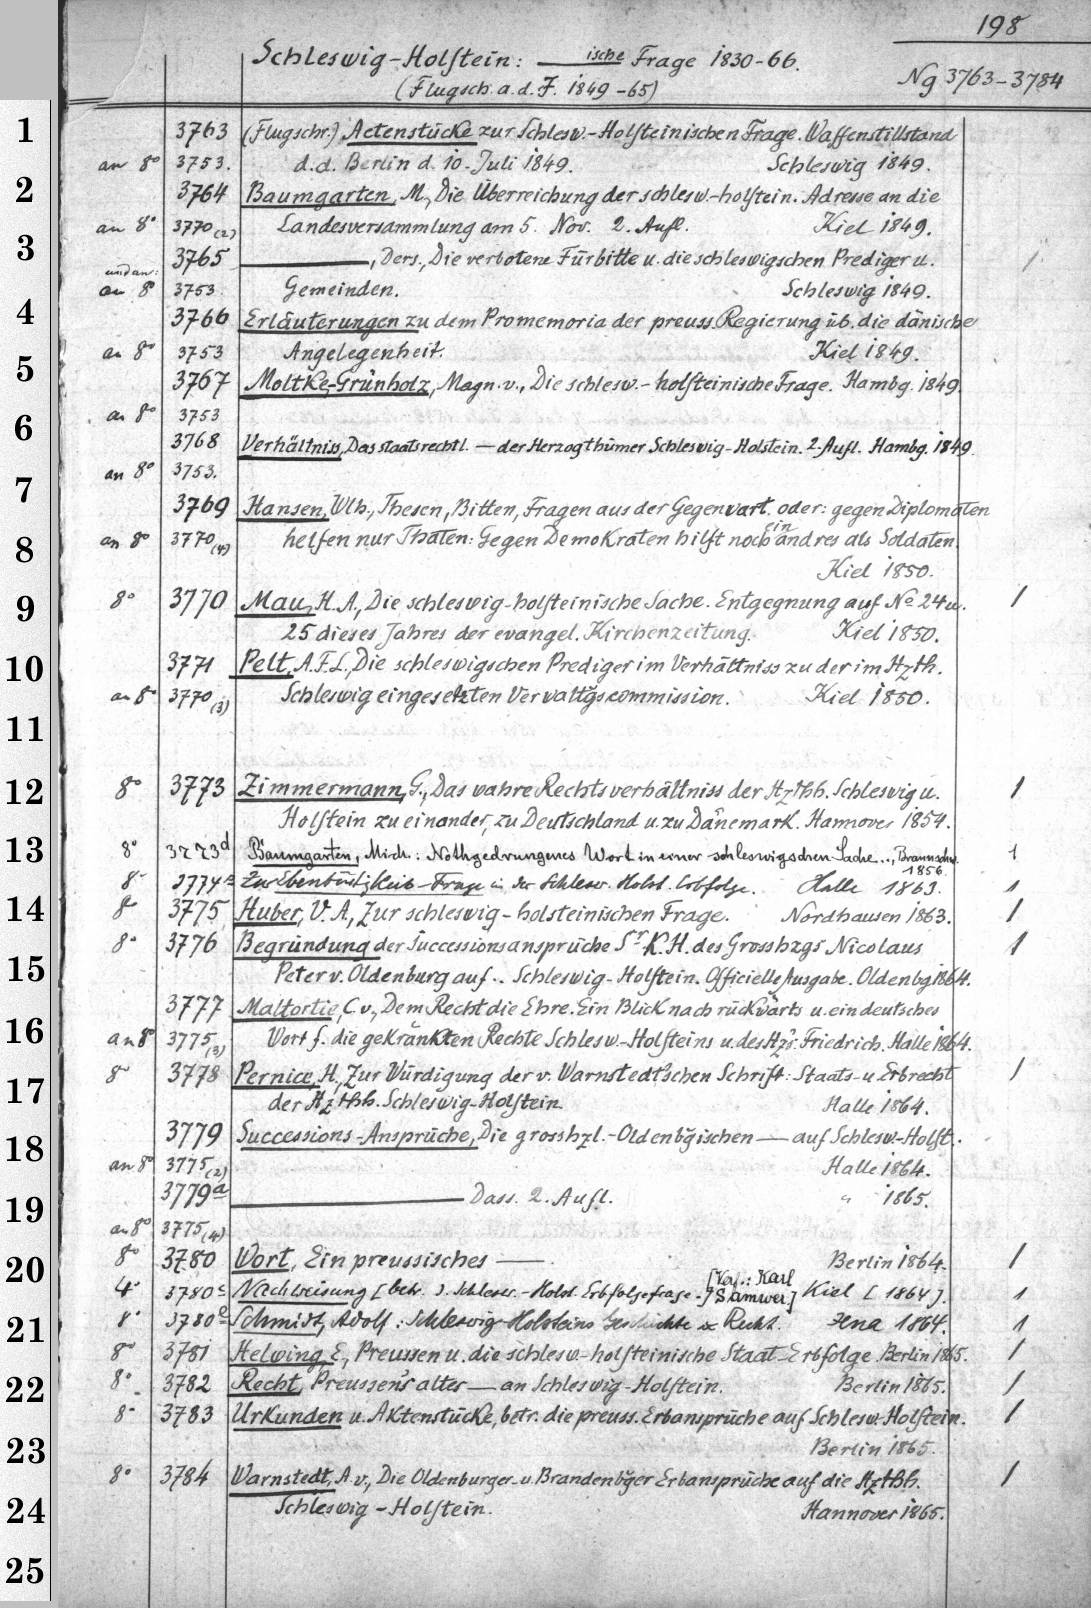 198
Schleswig-Holstein: ——ische Frage 1830-66.
(Flugsch. a. d. J. 1849-65)
Ng 3763-3784
1
3763 (Flugschr.) Actenstücke zur Schlesw.-Holsteinischen Frage. Waffenstillstand
an 8° 3753. d.d. Berlin d. 10. Juli 1849. Schleswig 1849.
2
3764 Baumgarten, M., Die Überreichung der schlesw-holstein. Adresse an die
an 8° 3770(2) Landesversammlung am 5. Nov. 2. Aufl. Kiel 1849.
3
3765 ———, Ders., Die verbotene Fürbitte u. die schleswigschen Prediger u.
und an:
an 8° 3753 Gemeinden. Schleswig 1849.
4
3766 Erläuterungen zu dem Promemoria der preuss. Regierung üb. die dänische
an 8° 3753 Angelegenheit. Kiel 1849.
5
3767 Moltke-Grünholz, Magn. v., Die schlesw.-holsteinische Frage. Hambg. 1849.
an 8° 3753
6
3768 Verhältniss, Das staatsrechtl. — der Herzogthümer Schleswig-Holstein. 2. Aufl. Hambg. 1849.
an 8° 3753.
7
3769 Hansen, Wlh., Thesen, Bitten, Fragen aus der Gegenwart. oder: gegen Diplomaten
8
an 8° 3770(4) helfen nur Thaten: Gegen Demokraten hilft noch ein andres als Soldaten.
Kiel 1850.
9
8° 3770 Mau, H. A., Die schleswig-holsteinische Sache. Entgegnung auf No 24 u. 1
25 dieses Jahres der evangel. Kirchenzeitung. Kiel 1850.
10
3771 Pelt, A.F.L., Die schleswigschen Prediger im Verhältniss zu der im Hzth.
an 8° 3770(3) Schleswig eingesetzten Verwaltgscommission. Kiel 1850.
11
12
8° 3773 Zimmermann, G., Das wahre Rechtsverhältniss der Hzthh. Schleswig u. 1
Holstein zu einander, zu Deutschland u. zu Dänemark. Hannover 1854.
13
8° 3773d Baumgarten, Mich.: Nothgedrungenes Wort in einer schleswigschen Sache..., Braunschw. 1
1856.
8° 3774a Zur Ebenbürtigkeits-Frage in der Schlesw. Holst. Erbfolge. Halle 1863. 1
14
8° 3775 Huber, V. A., Zur schleswig-holsteinischen Frage. Nordhausen 1863. 1
8° 3776 Begründung der Successionsansprüche Sr K. H. des Grosshzgs Nicolaus 1
15
Peter v. Oldenburg auf.. Schleswig-Holstein. Officielle Ausgabe. Oldenbg 1864.
3777 Maltortie, C. v., Dem Recht die Ehre. Ein Blick nach rückwärts u. ein deutsches
16
an 8° 3775(3) Wort f. die gekränkten Rechte Schlesw.-Holsteins u. des Hzgs. Friedrich. Halle 1864.
17
8° 3778 Pernice, H., Zur Würdigung der v. Warnstedt'schen Schrift: Staats- u. Erbrecht 1
der Hzthh. Schleswig-Holstein. Halle 1864.
18
3779 Successions-Ansprüche, Die grosshzl.-Oldenbgischen — auf Schlesw.-Holst.
an 8° 3775(2) Halle 1864.
19
3779a ——— Dass. 2. Aufl. " 1865.
an 8° 3775(4)
20
8° 3780 Wort, Ein preussisches —. Berlin 1864. 1
4° 3780c Nachweisung [betr. d. Schlesw.-Holst. Erbfolgefrage.] [Verf.: Karl Samwer] Kiel [1864]. 1
21
8° 3780e Schmidt, Adolf: Schleswig-Holsteins Geschichte u. Recht. Jena 1864. 1
8° 3781 Helwing, E., Preussen u. die schlesw-holsteinische Staat-Erbfolge. Berlin 1865. 1
22
8° 3782 Recht, Preussen's altes — an Schleswig-Holstein. Berlin 1865. 1
8° 3783 Urkunden u. Aktenstücke, betr. die preuss. Erbansprüche auf Schlesw.-Holstein. 1
23
Berlin 1865.
8° 3784 Warnstedt, A. v., Die Oldenburger- u. Brandenbger Erbansprüche auf die Hzthh. 1
24
Schleswig-Holstein. Hannover 1865.
25